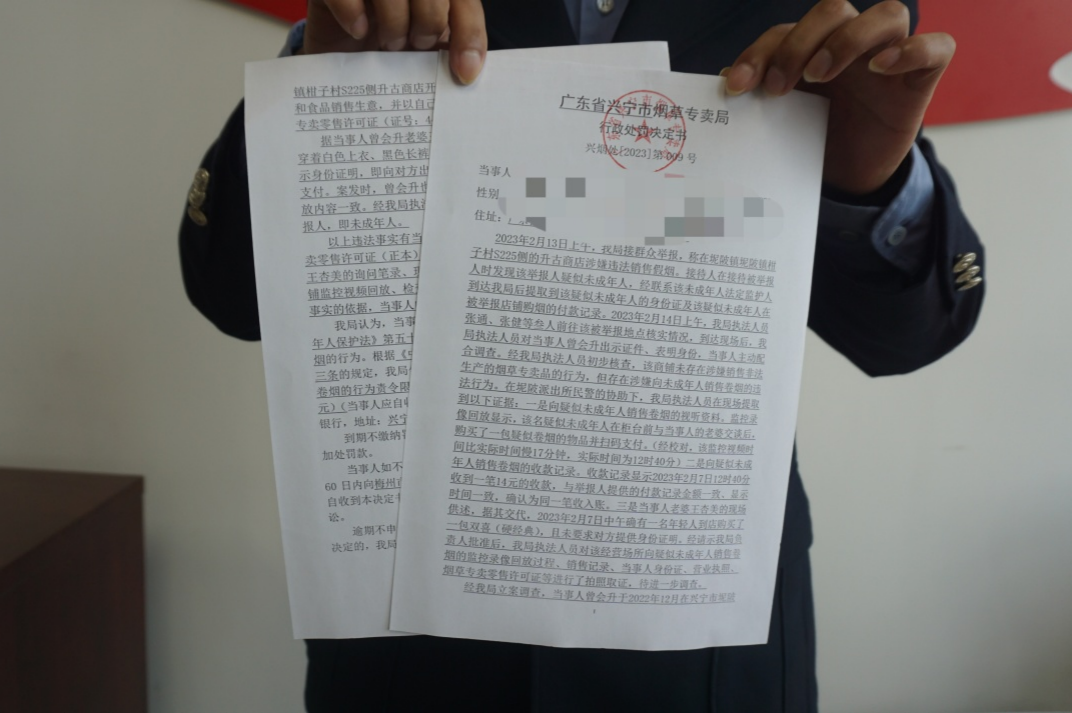 镇柑子村S225侧升古商店开
和食品销售生意，并以自己
专卖零售许可证（证号：4
据当事人曾会升老婆王
穿着白色上衣、黑色长裤
示身份证明，即向对方出
支付。案发时，曾会升出
放内容一致。经我局执法
报人，即未成年人。
以上违法事实有当
卖零售许可证（正本）
王杏美的询问笔录、现
铺监控视频回放、检
事实的依据，当事人
我局认为，当事
年人保护法》第五十
烟的行为。根据《中
三条的规定，我局
卷烟的行为责令限
元）（当事人应自收
银行，地址：兴宁
到期不缴纳罚
加处罚款。
当事人如不
60日内向梅州市
自收到本决定书
讼。
逾期不申
决定的，我局
广东省兴宁市烟草专卖局
行政处罚决定书
兴烟处[2023]第009号
当事人
性别
住址：
2023年2月13日上午，我局接群众举报，称在坭陂镇坭陂镇柑
子村S225侧的升古商店涉嫌违法销售假烟。接待人在接待被举报
人时发现该举报人疑似未成年人，经联系该未成年人法定监护人
到达我局后提取到该疑似未成年人的身份证及该疑似未成年人在
被举报店铺购烟的付款记录。2023年2月14日上午，我局执法人员
张通、张健等叁人前往该被举报地点核实情况，到达现场后，我
局执法人员对当事人曾会升出示证件、表明身份，当事人主动配
合调查。经我局执法人员初步核查，该商铺未存在涉嫌销售非法
生产的烟草专卖品的行为，但存在涉嫌向未成年人销售卷烟的违
法行为。在坭陂派出所民警的协助下，我局执法人员在现场提取
到以下证据：一是向疑似未成年人销售卷烟的视听资料。监控录
像回放显示，该名疑似未成年人在柜台前与当事人的老婆交谈后，
购买了一包疑似卷烟的物品并扫码支付。（经校对，该监控视频时
间比实际时间慢17分钟，实际时间为12时40分）二是向疑似未成
年人销售卷烟的收款记录。收款记录显示2023年2月7日12时40分
收到一笔14元的收款，与举报人提供的付款记录金额一致、显示
时间一致，确认为同一笔收入账。三是当事人老婆王杏美的现场
供述，据其交代，2023年2月7日中午确有一名年轻人到店购买了
一包双喜（硬经典），且未要求对方提供身份证明。经请示我局负
责人批准后，我局执法人员对该经营场所向疑似未成年人销售卷
烟的监控录像回放过程、销售记录、当事人身份证、营业执照、
烟草专卖零售许可证等进行了拍照取证，待进一步调查。
经我局立案调查，当事人曾会升于2022年12月在兴宁市坭陂
1